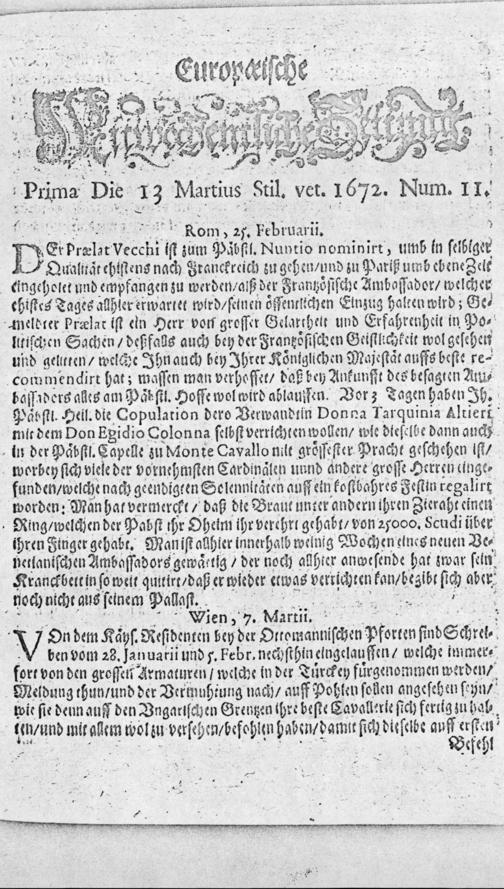 Europæische
Mitwochentliche Zeitung
Prima Die 13 Martius Stil. vet. 1672. Num. 11.
Rom, 25. Februarii.
DEr Prælat Vecchi ist zum Päbstl. Nuntio nominirt, umb in selbiger
Qualität ehistens nach Franckreich zu gehen/und zu Pariß umb ebene Zeit
eingeholet und empfangen zu werden/alß der Französische Ambassador/welcher
ehistes Tages allhier erwartet wird/seinen öffentlichen Einzug halten wird; Ge-
meldter Prælat ist ein Herr von grosser Gelartheit und Erfahrenheit in Po-
litischen Sachen/deßfalls auch bey der Französischen Geistlichkeit wol gesehen
und gelitten/welche Ihn auch bey Ihrer Königlichen Majestät auffs beste re-
commendirt hat; massen man verhoffet/daß bey Ankunfft des besagten Am-
bassadors alles am Päbstl. Hoffe wol wird ablauffen. Vor 3 Tagen haben Ih.
Päbstl. Heil. die Copulation dero Verwandtin Donna Tarquinia Altieri
mit dem Don Egidio Colonna selbst verrichten wollen/wie dieselbe dann auch
in der Päbstl. Capelle zu Monte Cavallo mit grössester Pracht geschehen ist/
worbey sich viele der vornehmsten Cardinälen unnd andere grosse Herren einge-
funden/welche nach geendigten Solennitäten auff ein kostbahres Festin regalirt
worden: Man hat vermerckt/daß die Braut unter andern ihren Zieraht einen
Ring/welchen der Pabst ihr Oheim ihr verehrt gehabt/von 25000. Scudi über
ihren Finger gehabt. Man ist allhier innerhalb weinig Wochen eines neuen Ve-
netianischen Ambassadors gewärtig/der noch allhier anwesende hat zwar sein
Kranckbett in so weit quitirt/daß er wieder etwas verrichten kan/begibt sich aber
noch nicht aus seinem Pallast.
Wien, 7. Martii.
VOn dem Käys. Residenten bey der Ottomannischen Pforten sind Schrei-
ben vom 28. Januarii und 5. Febr. nechsthin eingelauffen/welche immer-
fort von den grossen Armaturen/welche in der Türckey fürgenommen werden/
Meldung thun/und der Vermuhtung nach/auff Pohlen sollen angesehen seyn/
wie sie denn auff den Vngarischen Grenzen ihre beste Cavallerie sich fertig zu hal-
ten/und mit allem wol zu versehen/befohlen haben/damit sich dieselbe auff ersten
Befehl